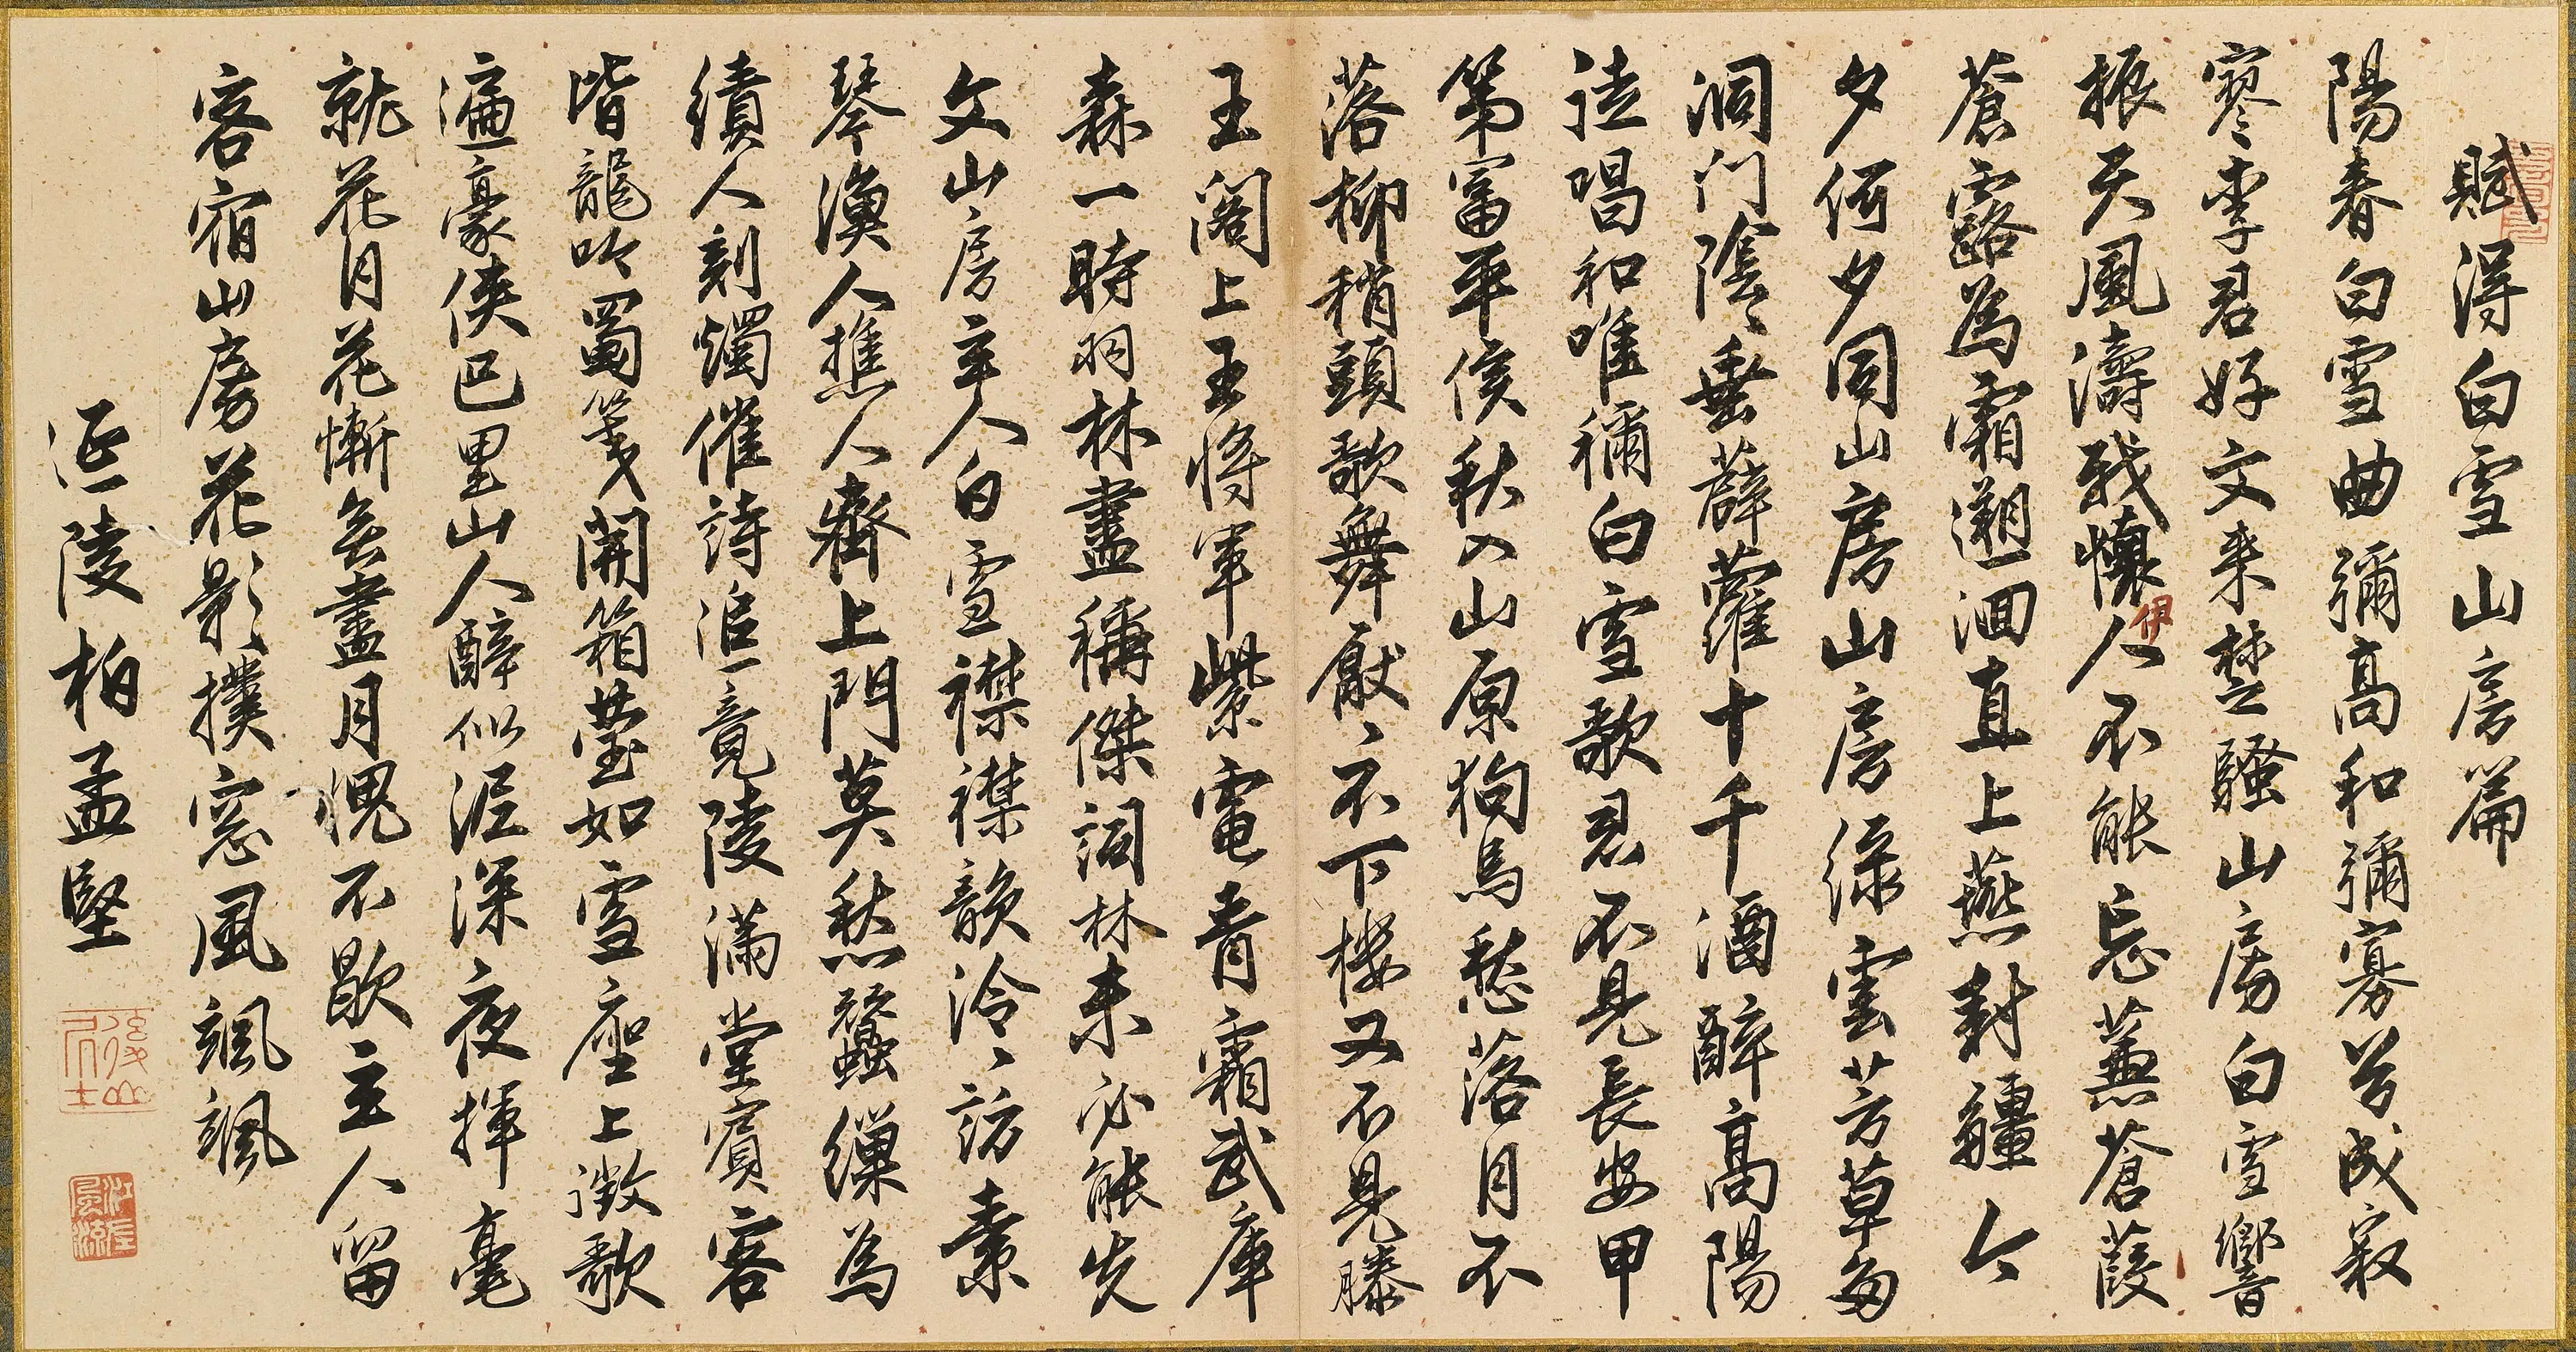 賦得白雪山房篇
陽春白雪曲彌高和彌寡兮成寂
寥李君好文来楚騷山房白雪響
振天風濤我懷伊人不能忘蒹蒼葭
蒼露為霜遡洄直上燕對疆今
夕何夕同山房山房緑雲芳草多
洞门陰垂薜蘿十千酒醉高陽
徒唱和唯稱白雪歌君不見長安甲
第富平侯秋入山原狗馬愁落月不
落柳稍頭歌舞厭厭不下楼又不見滕
王阁上王将軍紫電青霜武庫
森一時羽林盡稱傑詞林未必能先
文山房主人白雪襟襟韻泠泠訪素
琴漁人樵人齊上門莫愁蠶繅為
績人刻燭催詩追竟陵满堂賓客
皆龍吟蜀箋開箱瑩如雪座上徵歌
遍豪侠巴里山人醉似泥深夜揮毫
就花月花慚無盡月愧不歇主人留
客宿山房花影撲窓風颯颯
延陵柏孟堅
江左風流